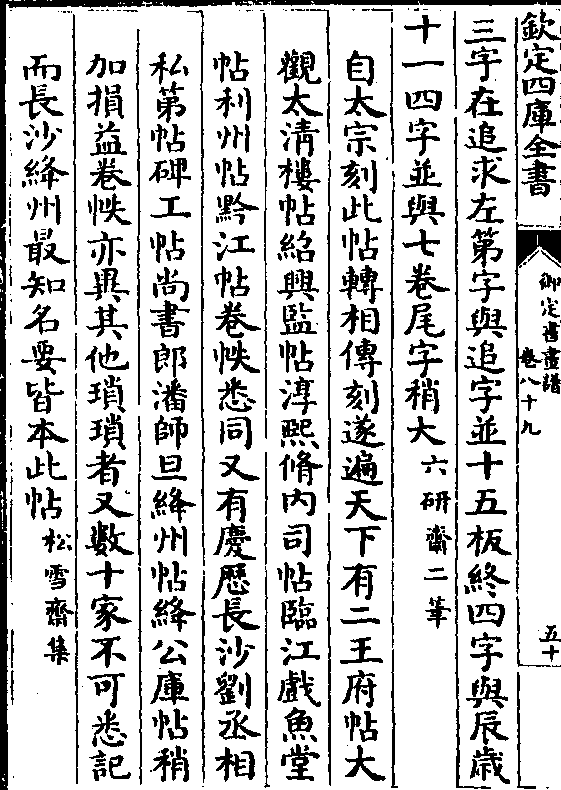 欽定四庫全書
御定書畫譜
卷八十九
五十
三字在追求左第字與追字並十五板終四字與辰歳
十一四字並與七卷尾字稍大六研齋二筆
自太宗刻此帖轉相傳刻遂遍天下有二王府帖大
觀太清樓帖紹興監帖淳熈脩内司帖臨江戲魚堂
帖利州帖黔江帖卷帙悉同又有慶歴長沙劉丞相
私第帖碑工帖尚書郎潘師旦絳州帖絳公庫帖稍
加損益卷帙亦異其他瑣瑣者又數十家不可悉記
而長沙絳州最知名要皆本此帖松雪齋集